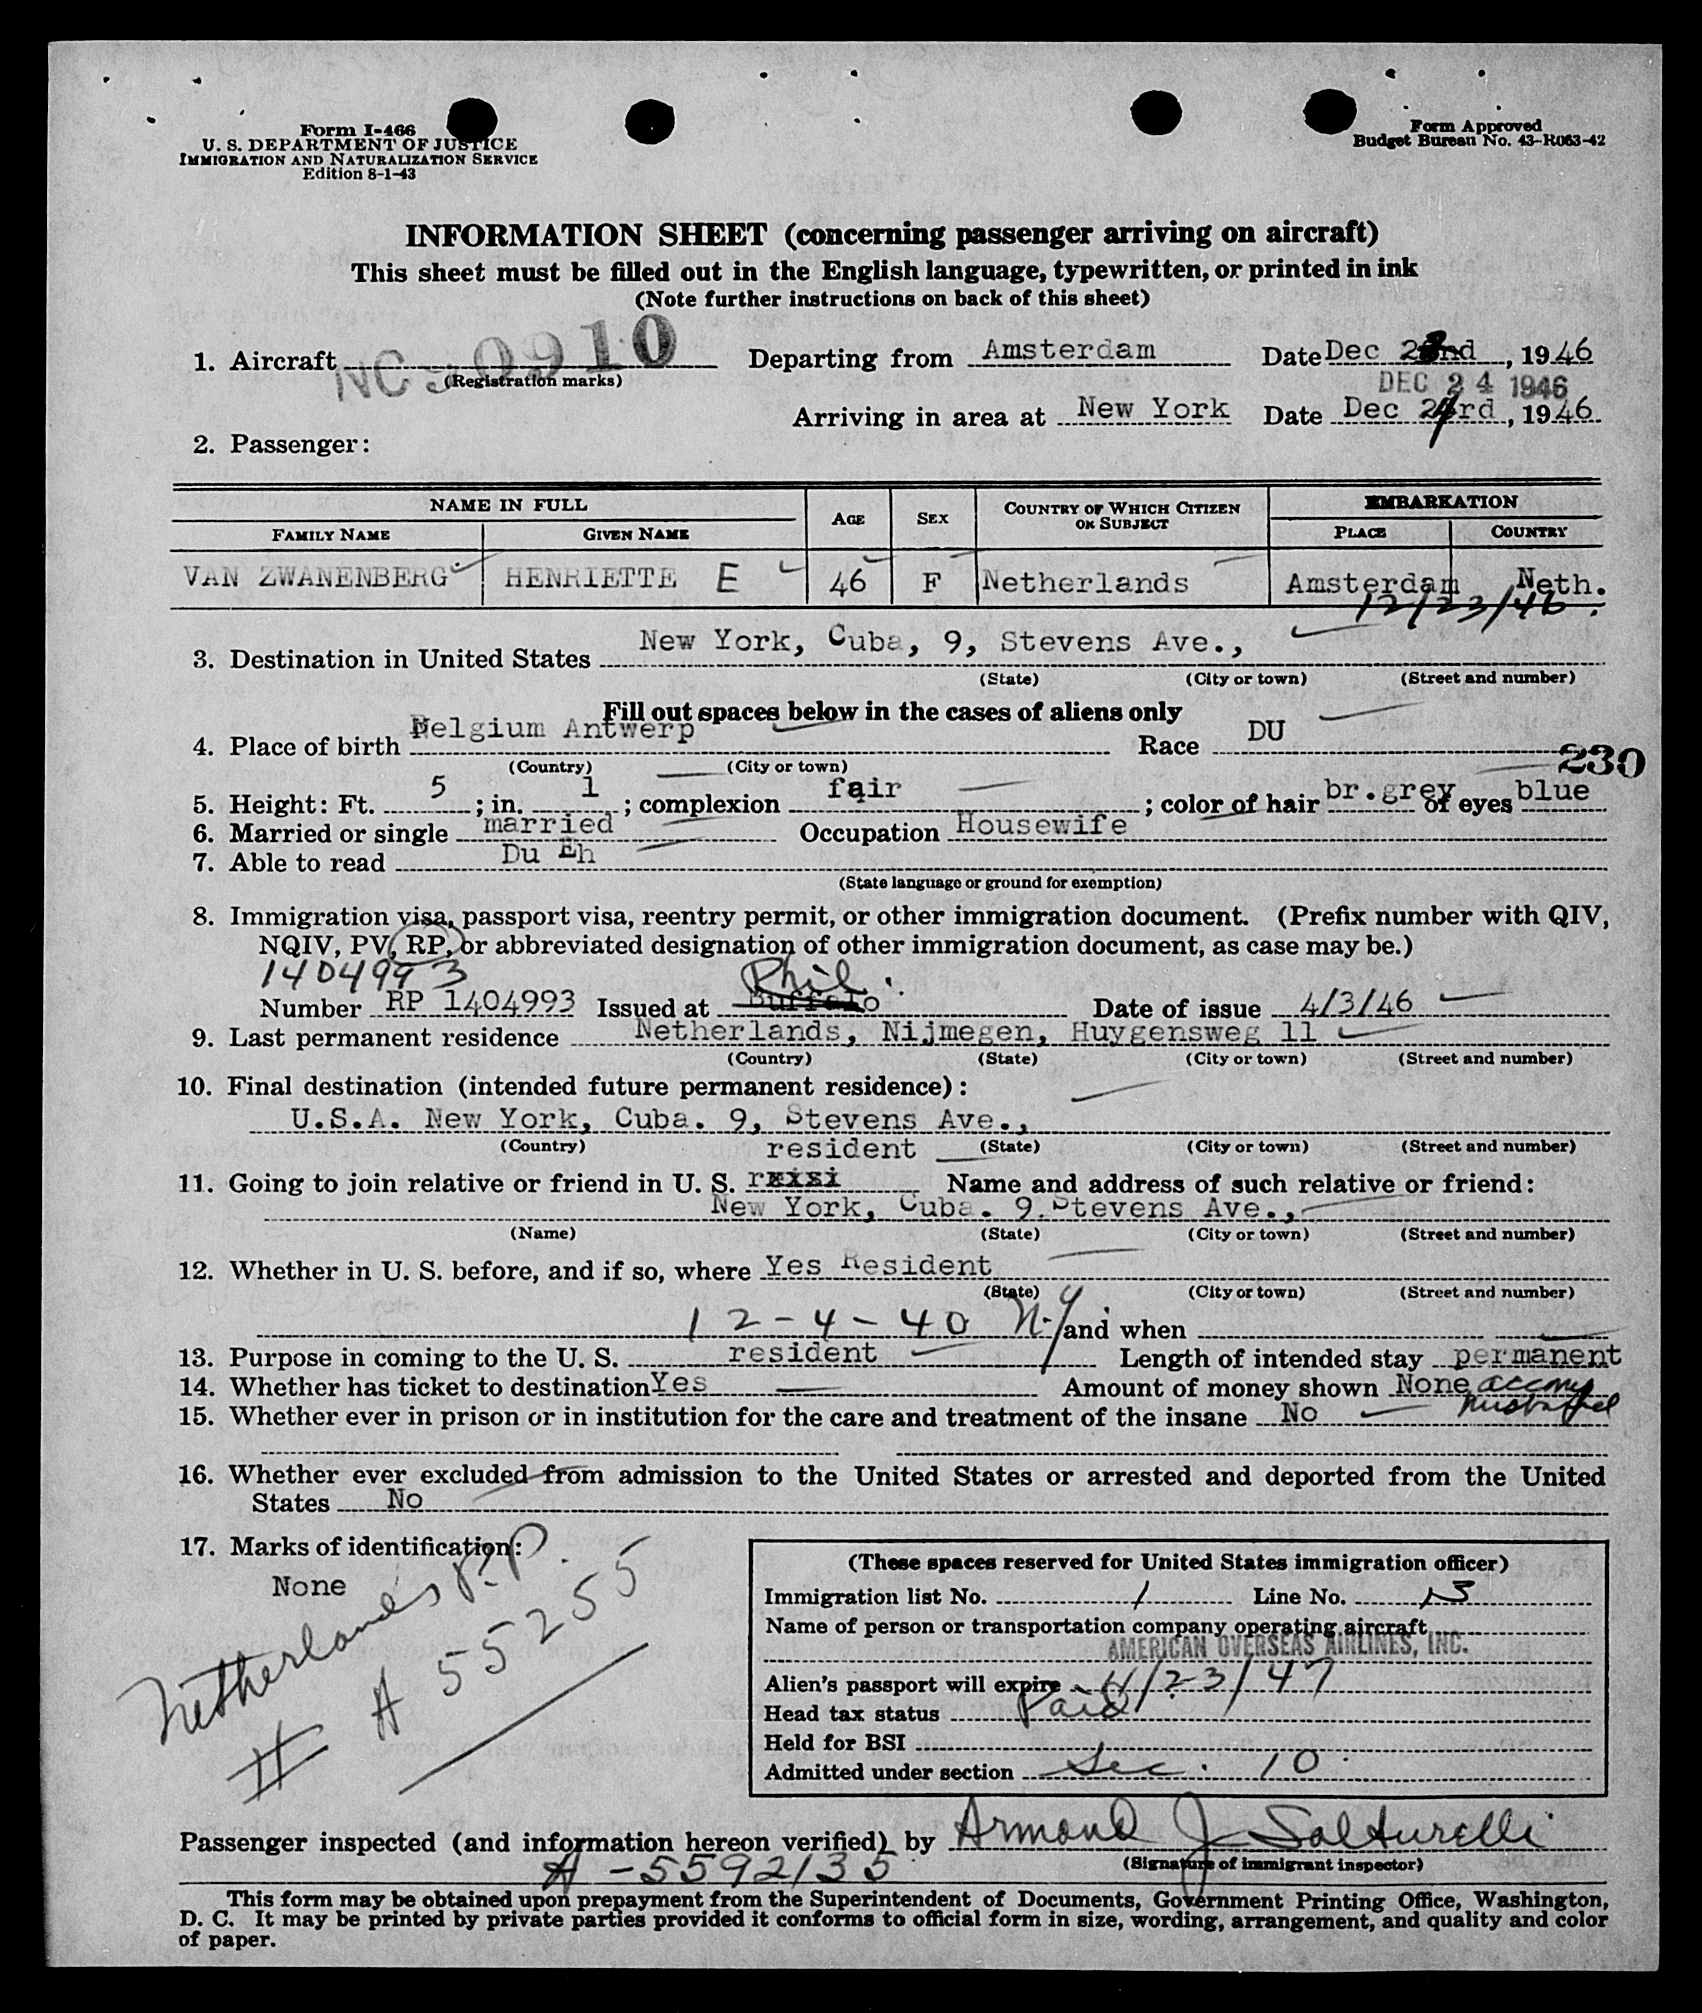 Form I-466
U. S. DEPARTMENT OF JUSTICE
IMMIGRATION AND NATURALIZATION SERVICE
Edition 8-1-43
Form Approved
Budget Bureau No. 43-R063-42
INFORMATION SHEET (concerning passenger arriving on aircraft)
This sheet must be filled out in the English language, typewritten, or printed in ink
(Note further instructions on back of this sheet)
1. Aircraft NC 90910 Departing from Amsterdam Date Dec 23nd, 1946
(Registration marks)
DEC 24 1946
Arriving in area at New York Date Dec 24rd, 1946
2. Passenger:
NAME IN FULL AGE SEX COUNTRY OF WHICH CITIZEN OR SUBJECT EMBARKATION
FAMILY NAME GIVEN NAME PLACE COUNTRY
VAN ZWANENBERG HENRIETTE E 46 F Netherlands Amsterdam Neth.
12/23/46
3. Destination in United States New York, Cuba, 9, Stevens Ave.,
(State) (City or town) (Street and number)
Fill out spaces below in the cases of aliens only
4. Place of birth Belgium Antwerp Race DU
(Country) (City or town)
230
5. Height: Ft. 5; in. 1; complexion fair; color of hair br.grey of eyes blue
6. Married or single married Occupation Housewife
7. Able to read Du Eh
(State language or ground for exemption)
8. Immigration visa, passport visa, reentry permit, or other immigration document. (Prefix number with QIV,
NQIV, PV, RP, or abbreviated designation of other immigration document, as case may be.)
1404993 Phil.
Number RP 1404993 Issued at Buffalo Date of issue 4/3/46
9. Last permanent residence Netherlands, Nijmegen, Huygensweg 11
(Country) (State) (City or town) (Street and number)
10. Final destination (intended future permanent residence):
U.S.A. New York, Cuba. 9, Stevens Ave.,
(Country) (State) (City or town) (Street and number)
resident
11. Going to join relative or friend in U. S. Name and address of such relative or friend:
New York, Cuba. 9.Stevens Ave.,
(Name) (State) (City or town) (Street and number)
12. Whether in U. S. before, and if so, where Yes Resident
(State) (City or town) (Street and number)
12-4-40 N.Y and when
13. Purpose in coming to the U. S. resident Length of intended stay permanent
14. Whether has ticket to destination Yes Amount of money shown None accomp
husband
15. Whether ever in prison or in institution for the care and treatment of the insane No
16. Whether ever excluded from admission to the United States or arrested and deported from the United
States No
17. Marks of identification:
None
Netherlands P.P.
# A 55255
(These spaces reserved for United States immigration officer)
Immigration list No. 1 Line No. 15
Name of person or transportation company operating aircraft
AMERICAN OVERSEAS AIRLINES, INC.
Alien's passport will expire 4/23/47
Head tax status Paid
Held for BSI
Admitted under section Sec. 10
Passenger inspected (and information hereon verified) by Armond J Salturelli
(Signature of immigrant inspector)
A-5592135
This form may be obtained upon prepayment from the Superintendent of Documents, Government Printing Office, Washington,
D. C. It may be printed by private parties provided it conforms to official form in size, wording, arrangement, and quality and color
of paper.